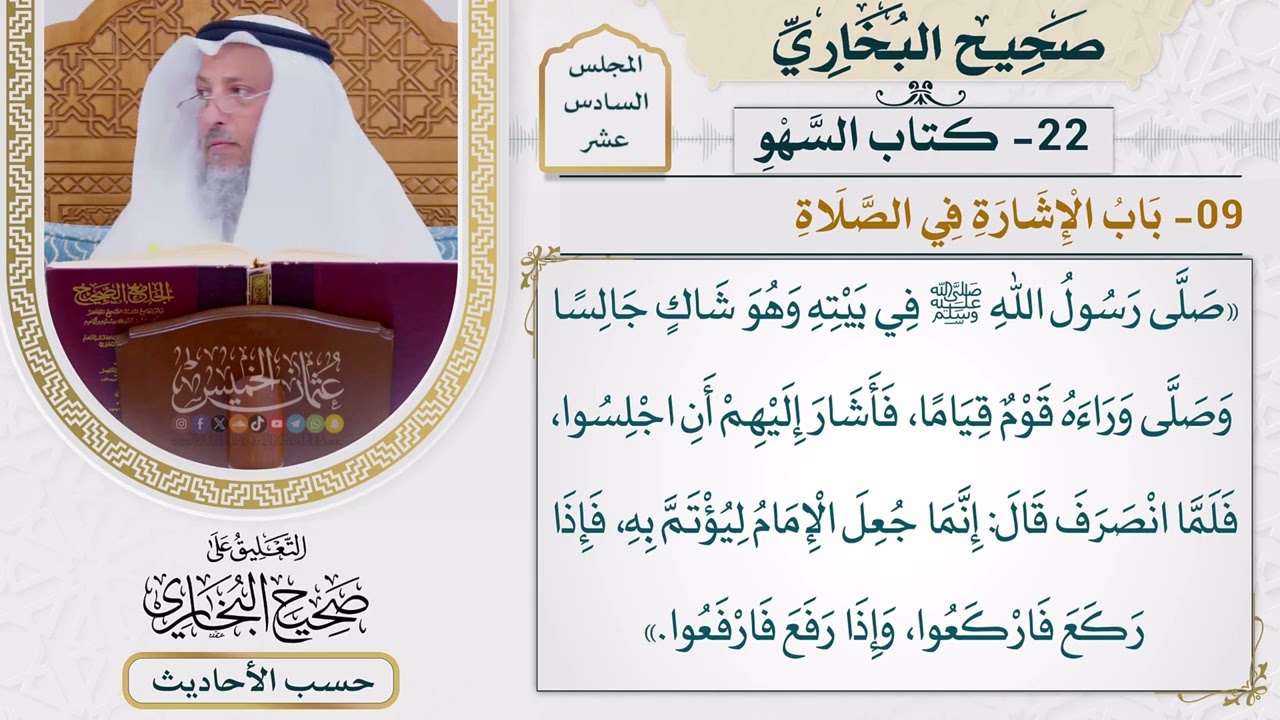 صَحِيح البُخَارِيِّ
المجلس
السادس
عشر
22- كتاب السَّهْوِ
09- بَابُ الْإِشَارَةِ فِي الصَّلَاةِ
«صَلَّى رَسُولُ اللهِ ﷺ فِي بَيْتِهِ وَهُوَ شَاكٍ جَالِسًا
وَصَلَّى وَرَاءَهُ قَوْمٌ قِيَامًا، فَأَشَارَ إِلَيْهِمْ أَنِ اجْلِسُوا،
فَلَمَّا انْصَرَفَ قَالَ: إِنَّمَا جُعِلَ الْإِمَامُ لِيُؤْتَمَّ بِهِ، فَإِذَا
رَكَعَ فَارْكَعُوا، وَإِذَا رَفَعَ فَارْفَعُوا.»
الجامع الصحيح
عُثمان الخميس
التَّعْلِيقُ عَلَى
صَحِيحِ البُخَارِي
حسب الأحاديث